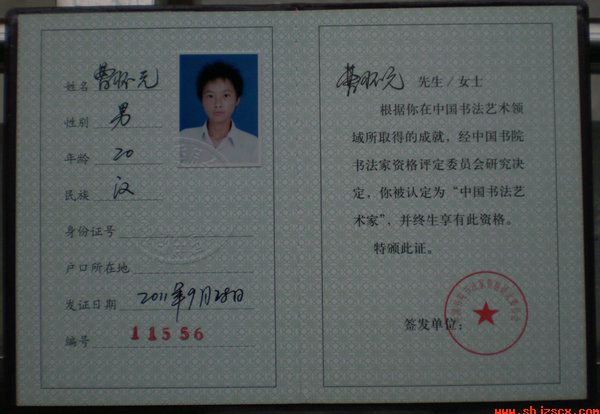 姓名 曹怀元
性别 男
年龄 20
民族 汉
身份证号
户口所在地
发证日期 2011年9月28日
编号 11556
曹怀元 先生/女士
根据你在中国书法艺术领
域所取得的成就，经中国书院
书法家资格评定委员会研究决
定，你被认定为“中国书法艺
术家”，并终生享有此资格。
特颁此证。
签发单位：
www.shjzscx.com